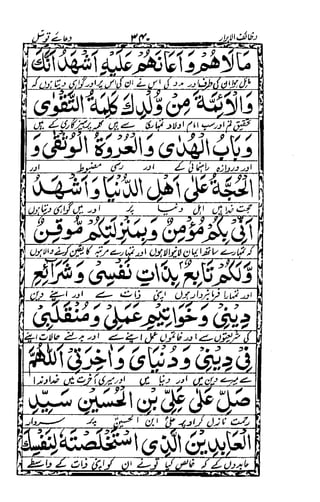 وظائف الابرار ۳۴۰ دعائے توسل
مَالَاهُمْ وَاَعَانَهُمْ عَلَيْهِ اَشْهَدُ اَنَّكَ
مائل ہوا ان کی طرف اور مدد کی اس نے ان کی اور گواہی دیتا ہوں کہ
وَالْاَئِمَّةَ مِنْ وُلْدِكَ كَلِمَةُ التَّقْوٰى
تحقیق تم اور سب امام اولاد تمہاری سے ہیں کلمہ پرہیزگاری کے ہیں
وَبَابُ الْهُدٰى وَالْعُرْوَةُ الْوُثْقٰى وَ
اور دروازہ راہنمائی کے اور رسی مضبوط اور
الْحُجَّةُ عَلٰى اَهْلِ الدُّنْيَا وَاَشْهَدُ
حجت خدا ہیں اہل دنیا پر اور میں گواہی دیتا ہوں
اَنِّىْ بِكُمْ مُؤْمِنٌ وَبِمَنْزِلَتِكُمْ مُوْقِنٌ
کہ تمہارے ساتھ ایمان لانیوالا ہوں اور تمہارے مرتبہ کا یقین کرنے والا ہوں
وَلَكُمْ تَابِعٌ بِذَاتِ نَفْسِىْ وَشَرَائِعِ
اور تمہارا فرمانبردار ہوں اپنی ذات سے اور اپنے دین
دِيْنِىْ وَخَوَاتِيْمِ عَمَلِىْ وَمُنْقَلَبِىْ
کی شریعتوں سے اور خاتموں عمل اپنے سے اور بدلنے حالات اپنے
فِىْ دِيْنِىْ وَدُنْيَاىَ وَاٰخِرَتِىْ اَللّٰهُمَّ
سے میرے دین میں اور دنیا میں اور میری آخرت میں خداوندا
صَلِّ عَلٰى عَلِىِّ بْنِ الْحُسَيْنِ سَيِّدِ
رحمت نازل کر اوپر علی ابن الحسین پر سردار
الْعَابِدِيْنَ الَّذِى اسْتَخْلَصْتَهٗ لِنَفْسِكَ
عابدوں کے کہ خالص کیا تو نے ان کو اپنی ذات کے واسطے